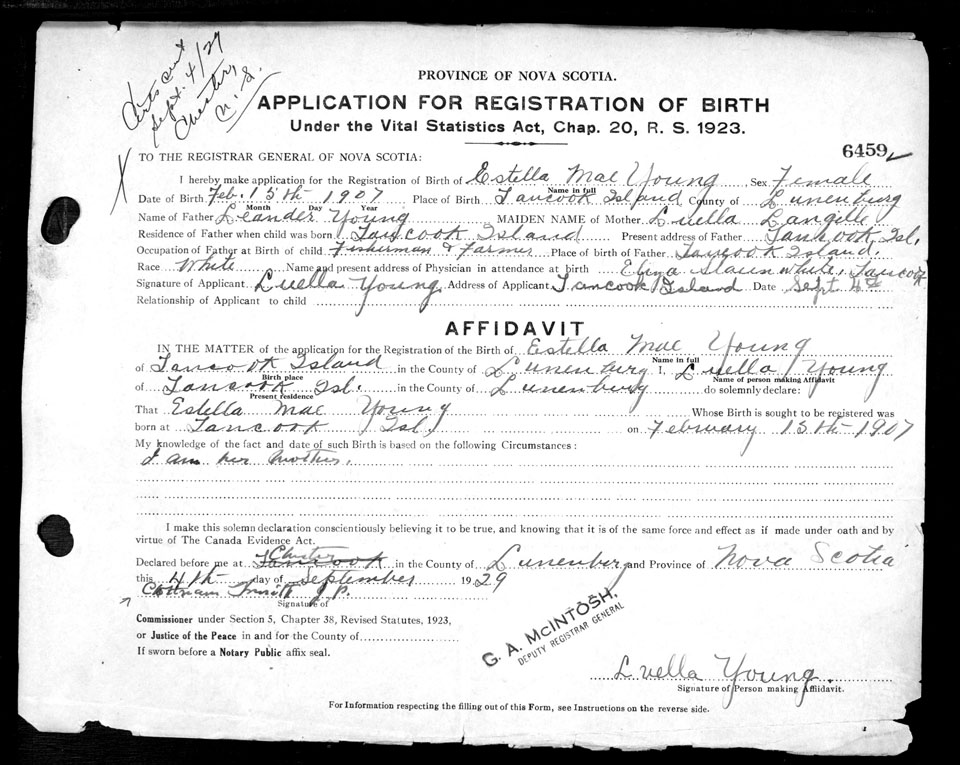 Certs sent
Sept. 4/29
Chester,
N. S.
PROVINCE OF NOVA SCOTIA.
APPLICATION FOR REGISTRATION OF BIRTH
Under the Vital Statistics Act, Chap. 20, R. S. 1923.
6459 ✓
X
TO THE REGISTRAR GENERAL OF NOVA SCOTIA:
I hereby make application for the Registration of Birth of Estella Mae Young Sex Female
Name in full
Date of Birth Feb. 15th 1907 Place of Birth Tancook Island County of Lunenburg
Month Day Year
Name of Father Leander Young MAIDEN NAME of Mother Luella Langille
Residence of Father when child was born Tancook Island Present address of Father Tancook Isl.
Occupation of Father at Birth of child Fisherman & Farmer Place of birth of Father Tancook Island.
Race White Name and present address of Physician in attendance at birth Eliza Tancook
Signature of Applicant Luella Young Address of Applicant Tancook Island Date Sept 4th
Relationship of Applicant to child
AFFIDAVIT
IN THE MATTER of the application for the Registration of the Birth of Estella Mae Young
Name in full
of Tancook Island in the County of Lunenburg I, Luella Young
Birth place Name of person making Affidavit
of Tancook Isl. in the County of Lunenburg do solemnly declare:
Present residence
That Estella Mae Young Whose Birth is sought to be registered was
born at Tancook Isl. on February 15th 1907
My knowledge of the fact and date of such Birth is based on the following Circumstances:
I am her mother.
I make this solemn declaration conscientiously believing it to be true, and knowing that it is of the same force and effect as if made under oath and by
virtue of The Canada Evidence Act.
Chester
Declared before me at Tancook in the County of Lunenburg and Province of Nova Scotia
this 4th day of September 1929
Smith J. P.
Signature of
Commissioner under Section 5, Chapter 38, Revised Statutes, 1923,
or Justice of the Peace in and for the County of
If sworn before a Notary Public affix seal.
G. A. McINTOSH.
DEPUTY REGISTRAR GENERAL
Luella Young.
Signature of Person making Affidavit.
For Information respecting the filling out of this Form, see Instructions on the reverse side.